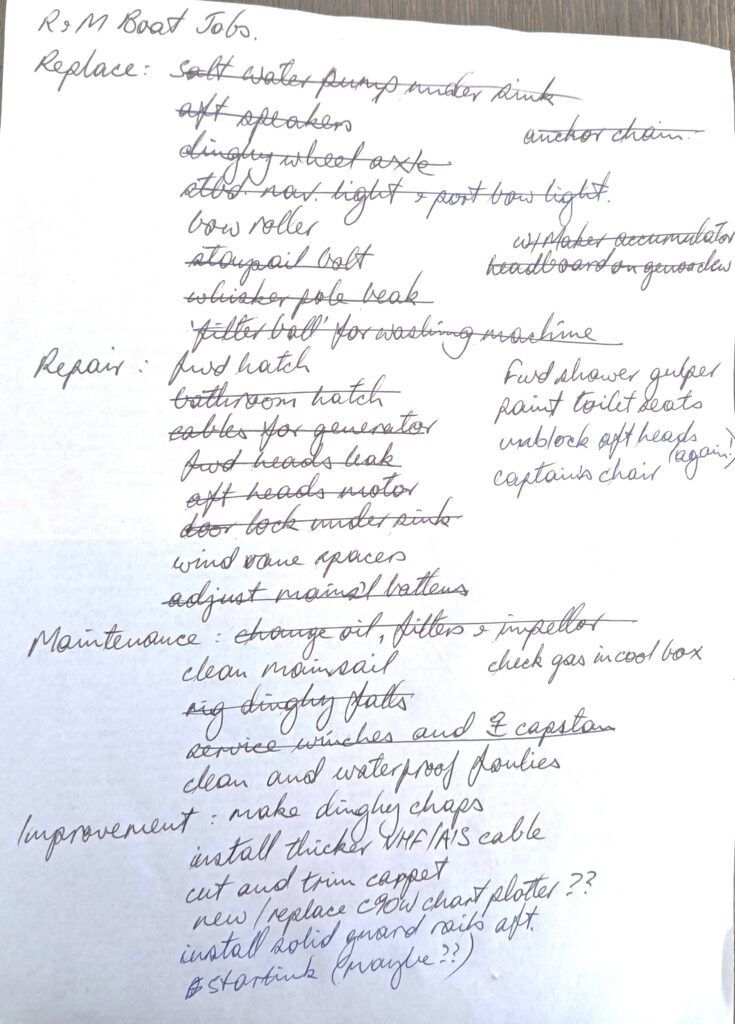 R & M Boat Jobs.
Replace: salt water pump under sink
aft speakers
anchor chain.
dinghy wheel axle
stbd. nav. light & port bow light.
bow roller
w/maker accumulator
staupail bolt
headboard on genoa clew
whisker pole beak
'filter ball' for washing machine
Repair: fwd hatch
fwd shower gulper
bathroom hatch
paint toilet seats
cables for generator
unblock aft heads (again!)
fwd heads leak
captain's chair
aft heads motor
door lock under sink
wind vane spacers
adjust mains'l battens
Maintenance: change oil, filters & impellor
clean mainsail
check gas in cool box
rig dinghy falls
service winches and capstan
clean and waterproof foulies
Improvement: make dinghy chaps
install thicker VHF/AIS cable
cut and trim carpet
new/replace C90W chart plotter ??
install solid guard rails aft.
startink (maybe??)